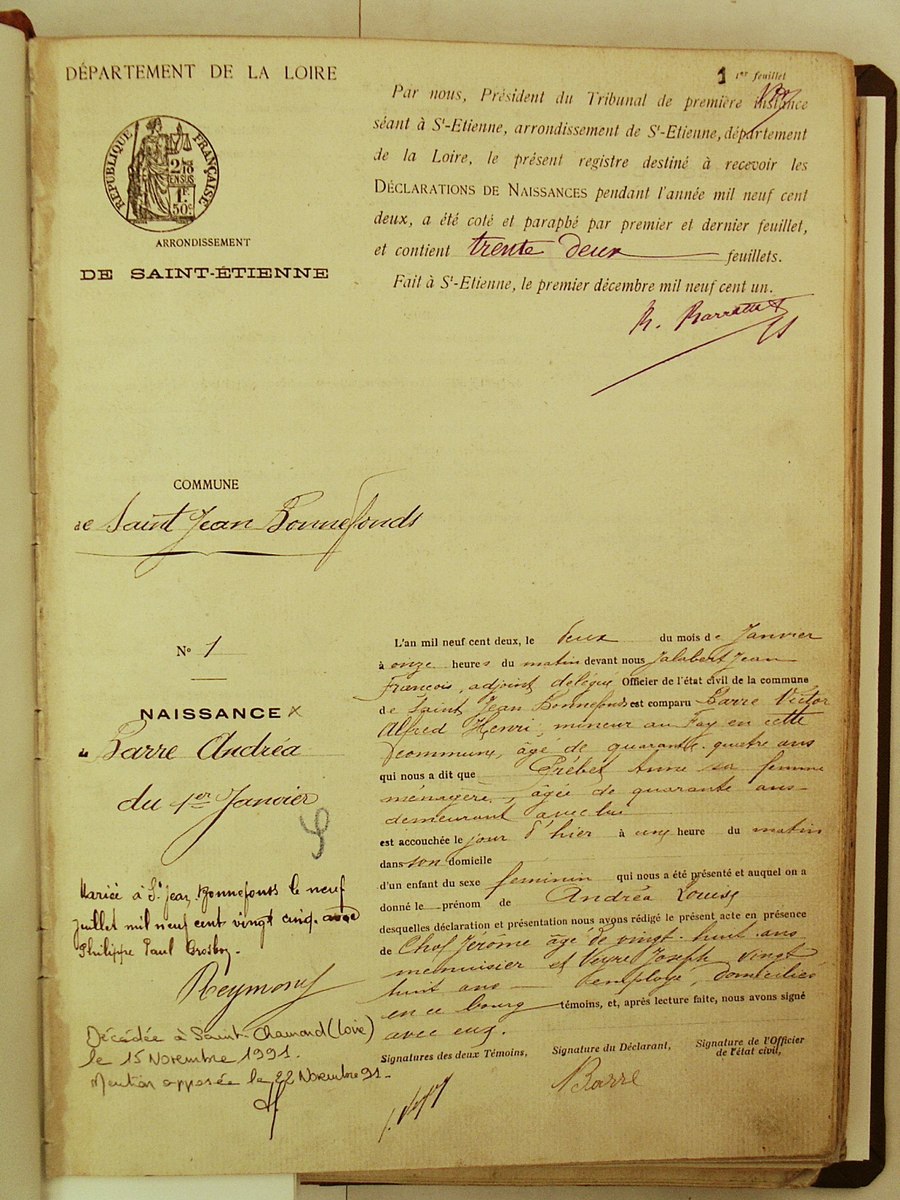 DÉPARTEMENT DE LA LOIRE
RÉPUBLIQUE FRANÇAISE
2/10 EN SUS
1F
50c
ARRONDISSEMENT
DE SAINT-ÉTIENNE
1 1er feuillet
Par nous, Président du Tribunal de première instance
séant à St-Etienne, arrondissement de St-Etienne, département
de la Loire, le présent registre destiné à recevoir les
DÉCLARATIONS DE NAISSANCES pendant l'année mil neuf cent
deux, a été coté et parapbé par premier et dernier feuillet,
et contient trente deux feuillets.
Fait à St-Etienne, le premier décembre mil neuf cent un.
COMMUNE
de Saint Jean Bonnefonds
N° 1
NAISSANCE
de Barre Andréa
du 1er Janvier
Mariée à St Jean Bonnefonds le neuf
Juillet mil neuf cent vingt cinq avec
Philippe Paul
Reymond
Décédée à Saint-Chamond (Loire)
le 15 Novembre 1991.
Mention apposée le 22 Novembre 91.
L'an mil neuf cent deux, le deux du mois de Janvier
à onze heures du matin devant nous Jalabert Jean
François, adjoint délégué Officier de l'état civil de la commune
de Saint Jean Bonnefonds est comparu Barre Victor
Alfred Henri, mineur au Fay en cette
commune, âgé de quarante-quatre ans
qui nous a dit que Prébet Anne sa femme
ménagère, âgée de quarante ans
demeurant avec lui
est accouchée le jour d'hier à une heure du matin
dans son domicile
d'un enfant du sexe féminin qui nous a été présenté et auquel on a
donné le prénom de Andréa Louise
desquelles déclaration et présentation nous avons rédigé le présent acte en présence
de Chol Jérôme âgé de vingt-huit ans
menuisier et Veyre Joseph, vingt
huit ans employé, domiciliés
en ce bourg témoins, et, après lecture faite, nous avons signé
avec eux.
Signatures des deux Témoins,
Signature du Déclarant,
Signature de l'Officier
de l'état civil,
Barre